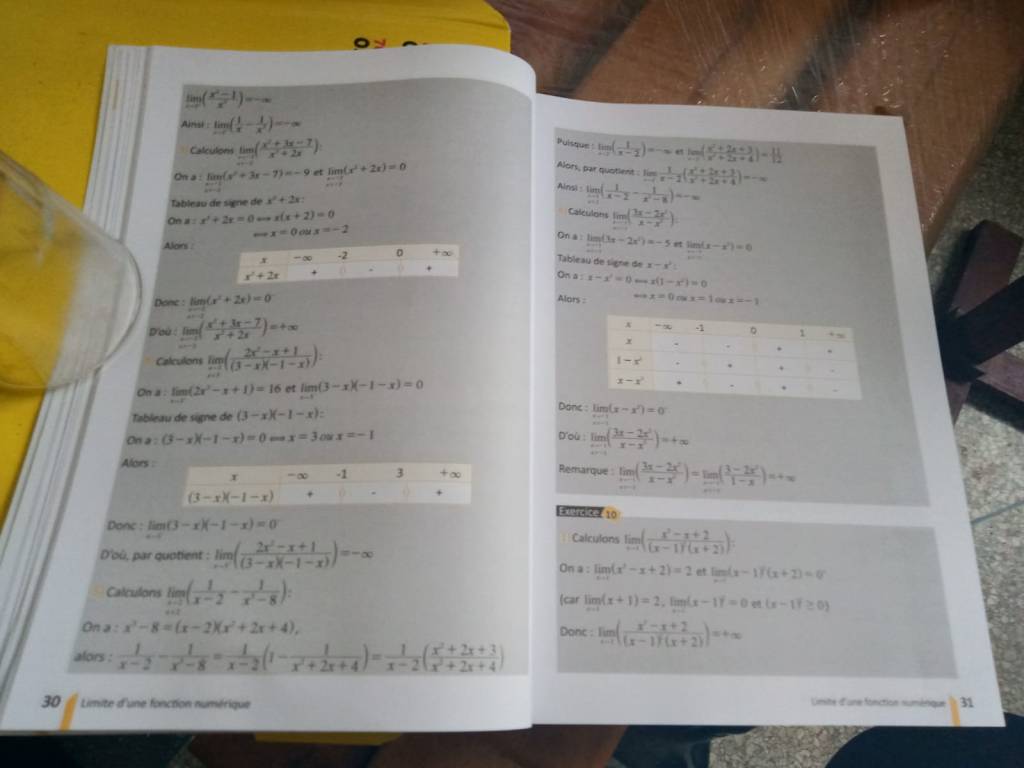 lim(x²−1/x³)=−∞
Ainsi : lim(1/x − 1/x³)=−∞
Calculons lim(x²+3x−7/x²+2x):
On a : lim(x²+3x−7)=−9 et lim(x²+2x)=0
Tableau de signe de x²+2x:
On a : x²+2x=0 ⟺ x(x+2)=0
⟺ x=0 ou x=−2
Alors :
x −∞ -2 0 +∞
x²+2x + 0 - 0 +
Donc : lim(x²+2x)=0⁻
D'où : lim(x²+3x−7/x²+2x)=+∞
Calculons lim(2x²−x+1/(3−x)(−1−x)):
On a : lim(2x²−x+1)=16 et lim(3−x)(−1−x)=0
Tableau de signe de (3−x)(−1−x):
On a : (3−x)(−1−x)=0 ⟺ x=3 ou x=−1
Alors :
x −∞ -1 3 +∞
(3−x)(−1−x) + 0 - 0 +
Donc : lim(3−x)(−1−x)=0⁻
D'où, par quotient : lim(2x²−x+1/(3−x)(−1−x))=−∞
Calculons lim(1/x−2 − 1/x³−8):
On a : x³−8=(x−2)(x²+2x+4),
alors : 1/x−2 − 1/x³−8 = 1/x−2(1−1/x²+2x+4) = 1/x−2(x²+2x+3/x²+2x+4)
30 Limite d'une fonction numérique
Puisque : lim(1/x−2)=−∞ et lim(x²+2x+3/x²+2x+4)=11/12
Alors, par quotient : lim 1/x−2(x²+2x+3/x²+2x+4)=−∞
Ainsi : lim(1/x−2 − 1/x³−8)=−∞
Calculons lim(3x−2x²/x−x³):
On a : lim(3x−2x²)=−5 et lim(x−x³)=0
Tableau de signe de x−x³:
On a : x−x³=0 ⟺ x(1−x²)=0
Alors : ⟺ x=0 ou x=1 ou x=−1
x −∞ -1 0 1 +∞
x - - 0 + +
1−x² - 0 + + 0 -
x−x³ + 0 - 0 + 0 -
Donc : lim(x−x³)=0⁻
D'où : lim(3x−2x²/x−x³)=+∞
Remarque : lim(3x−2x²/x−x³)=lim(3−2x²/1−x)=+∞
Exercice 10
Calculons lim(x²−x+2/(x−1)²(x+2)):
On a : lim(x²−x+2)=2 et lim(x−1)²(x+2)=0
(car lim(x+1)=2, lim(x−1)²=0 et (x−1)²≥0)
Donc : lim(x²−x+2/(x−1)²(x+2))=+∞
Limite d'une fonction numérique 31